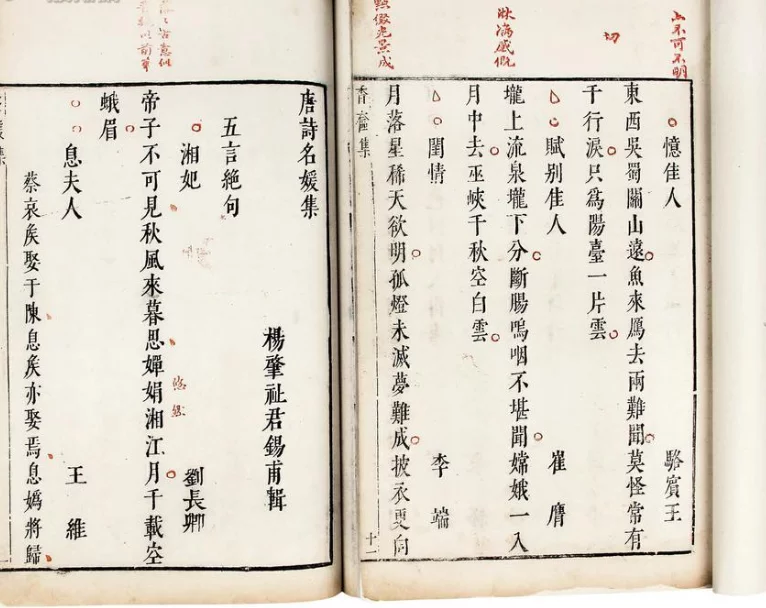 山不可不明
切
淋漓感慨
憶佳人 駱賓王
東西吳蜀關山遠魚來鴈去兩難聞莫怪常有
千行淚只爲陽臺一片雲
賦别佳人 崔膺
壠上流泉壠下分斷腸嗚咽不堪聞嫦娥一入
月中去巫峽千秋空白雲
閨情 李端
月落星稀天欲明孤燈未滅夢難成披衣更向
香奩集 十一
唐詩名媛集
楊肇祉君錫甫輯
五言絶句
湘妃 劉長卿
帝子不可見秋風來暮思嬋娟湘江月千載空
蛾眉
悠然
息夫人 王維
蔡哀矦娶于陳息矦亦娶焉息嬀將歸